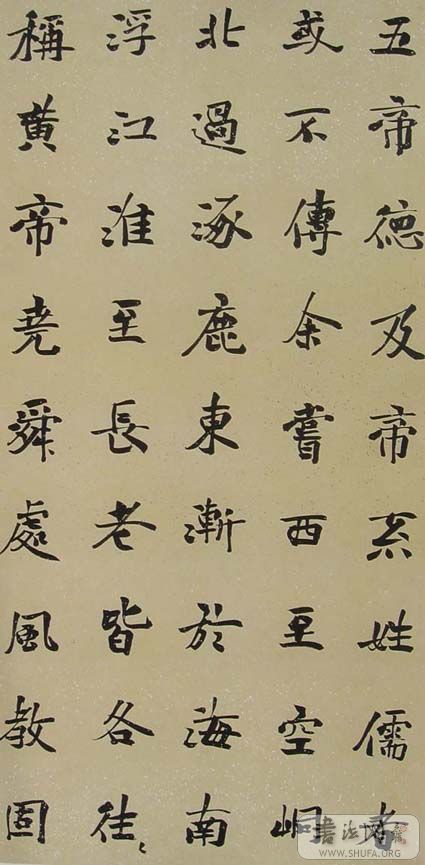 五帝德及帝系姓儒者
或不傳余嘗西至空峒
北過涿鹿東漸於海南
浮江淮至長老皆各往〻
稱黃帝堯舜處風教固
書法
WWW.SHUFA.ORG